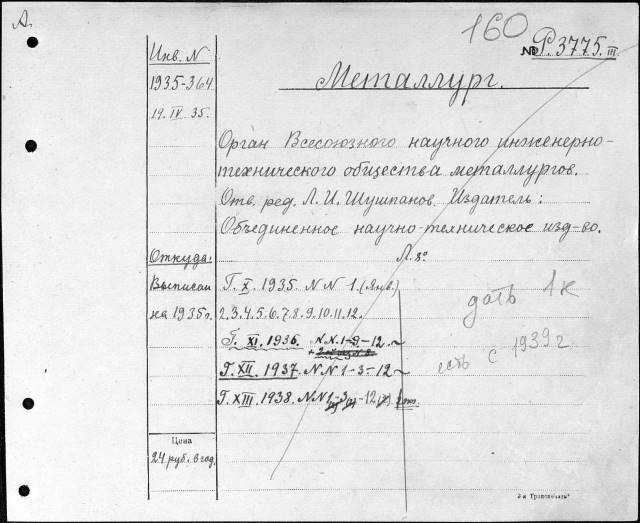 А.
160
№ Р. 3775. III
Инв. N
1935-364
19. IV. 35.
Металлург.
Орган Всесоюзного научного инженерно-
технического общества металлургов.
Отв. ред. Л. И. Шушпанов. Издатель:
Объединенное научно-техническое изд-во.
Л. 8º
Откуда:
Выписан
на 1935 г.
Г. X. 1935. N N 1. (Янв.)
2. 3. 4. 5. 6. 7. 8. 9. 10. 11. 12.
Г. XI. 1936. N. N. 1-9-12.
Г. XII. 1937. N N 1-3-12
Г. XIII. 1938. N N 1-3-12
дать 1к
есть с 1939 г
Цена
24 руб. в год.